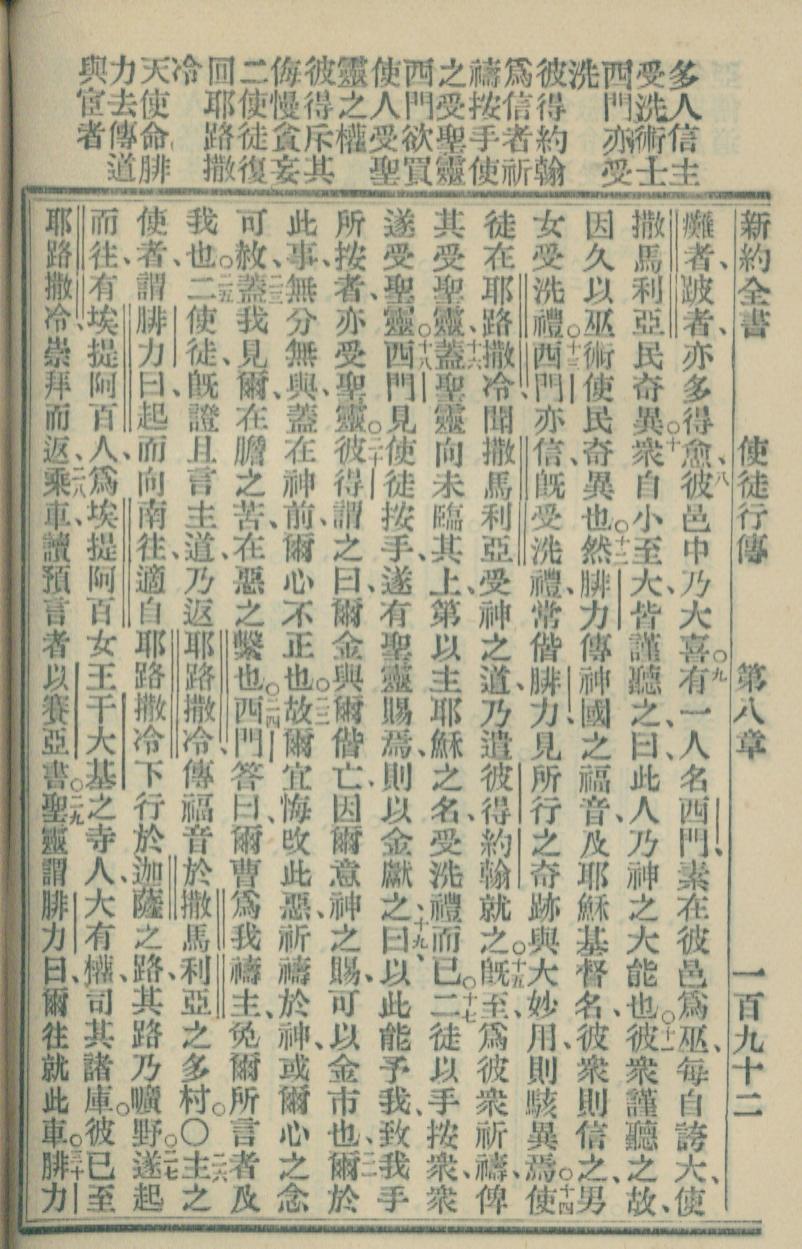 多人信主
受洗術士
西門亦受
洗
彼得約翰
爲信者祈
禱按手使
之受聖靈
西門欲買
使人受聖
靈之權
彼得斥其
侮慢貪妄
二使徒復
回耶路撒
冷
天使命腓
力去傳道
與宦者
新約全書 使徒行傳 第八章 一百九十二
癱者、跛者、亦多得愈、八彼邑中乃大喜○九有一人名西門、素在彼邑爲巫、每自誇大、使
撒馬利亞民奇異○十衆自小至大、皆謹聽之、曰、此人乃神之大能也○十一彼衆謹聽之、故、
因久以巫術使民奇異也○十二然腓力傳神國之福音、及耶穌基督名、彼衆則信之、男
女受洗禮○十三西門亦信、旣受洗禮、常偕腓力、見所行之奇跡、與大妙用、則駭異焉○十四使
徒在耶路撒冷、聞撒馬利亞受神之道、乃遣彼得約翰就之○十五旣至、爲彼衆祈禱、俾
其受聖靈、十六蓋聖靈向未臨其上、第以主耶穌之名、受洗禮而已○十七二徒以手按衆、衆
遂受聖靈○十八西門見使徒按手、遂有聖靈賜焉、則以金獻之、十九曰、以此能予我、致我手
所按者、亦受聖靈○二十彼得謂之曰、爾金與爾偕亡、因爾意神之賜、可以金市也、二一爾於
此事、無分無與、蓋在神前、爾心不正也○二二故爾宜悔改此惡、祈禱於神、或爾心之念
可赦、二三蓋我見爾、在膽之苦、在惡之繫也○二四西門答曰、爾曹爲我禱主、免爾所言者及
我也○二五二使徒、旣證且言主道、乃返耶路撒冷、傳福音於撒馬利亞之多村○〇二六主之
使者、謂腓力曰、起而向南往、適自耶路撒冷下行於迦薩之路、其路乃曠野○二七遂起
而往、有埃提阿百人、爲埃提阿百女王干大基之寺人、大有權、司其諸庫○彼已至
耶路撒冷、崇拜而返、二八乘車、讀預言者以賽亞書○二九聖靈謂腓力曰、爾往就此車○三十腓力